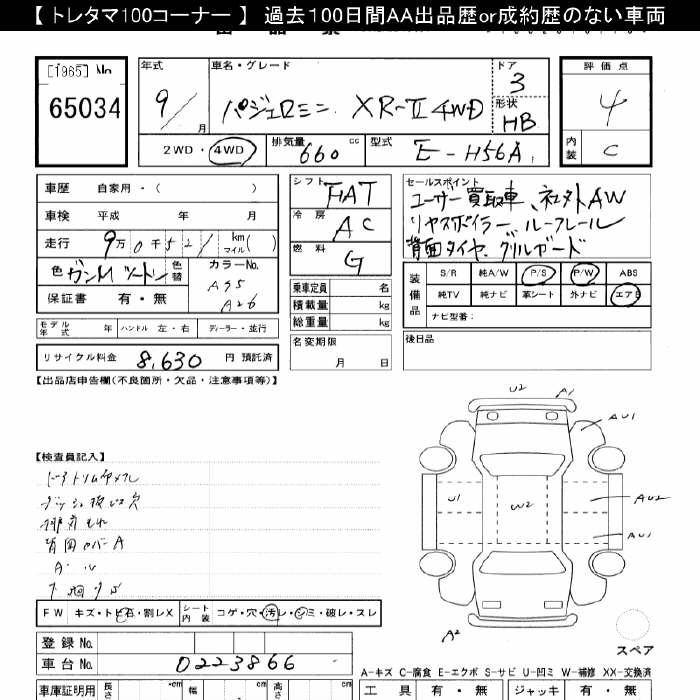 【トレタマ100コーナー】 過去100日間AA出品歴or成約歴のない車両
[1965] No
65034
年式
9/ 月
車名・グレード
パジェロミニ XR-Ⅱ 4WD
ドア
3
形状
HB
評価点
4
内装
C
2WD・4WD
排気量 660 cc
型式 E-H56A
車歴 自家用・( )
車検 平成 年 月
走行 9万0千521 km マイル( )
色 ガンM ツートン 色替
カラーNo.
A95
A26
保証書 有・無
シフト FAT
冷房 AC
燃料 G
乗車定員 名
積載量 kg
総重量 kg
名変期限
月 日
セールスポイント
ユーザー買取車、社外AW
リヤスポイラー、ルーフレール
背面タイヤ、グリルガード
装備品
S/R 純A/W P/S P/W ABS
純TV 純ナビ 革シート 外ナビ エアB
ナビ型番:
後日品
モデル年式 年 ハンドル 左・右 ディーラー・並行
リサイクル料金 8,630 円 預託済
【出品店申告欄(不良箇所・欠品・注意事項等)】
【検査員記入】
背面カバーA
U2 A1
AU1
U1
W2
AU2
AU1
A2
スペア
FW キズ・トビ石・割レX シート内装 コゲ・穴・汚レ・シミ・破レ・スレ
登録No.
車台No. 0223866
A-キズ C-腐食 E-エクボ S-サビ U-凹ミ W-補修 XX-交換済
車庫証明用 長さ cm 幅 cm 高さ cm
工具 有・無 ジャッキ 有・無